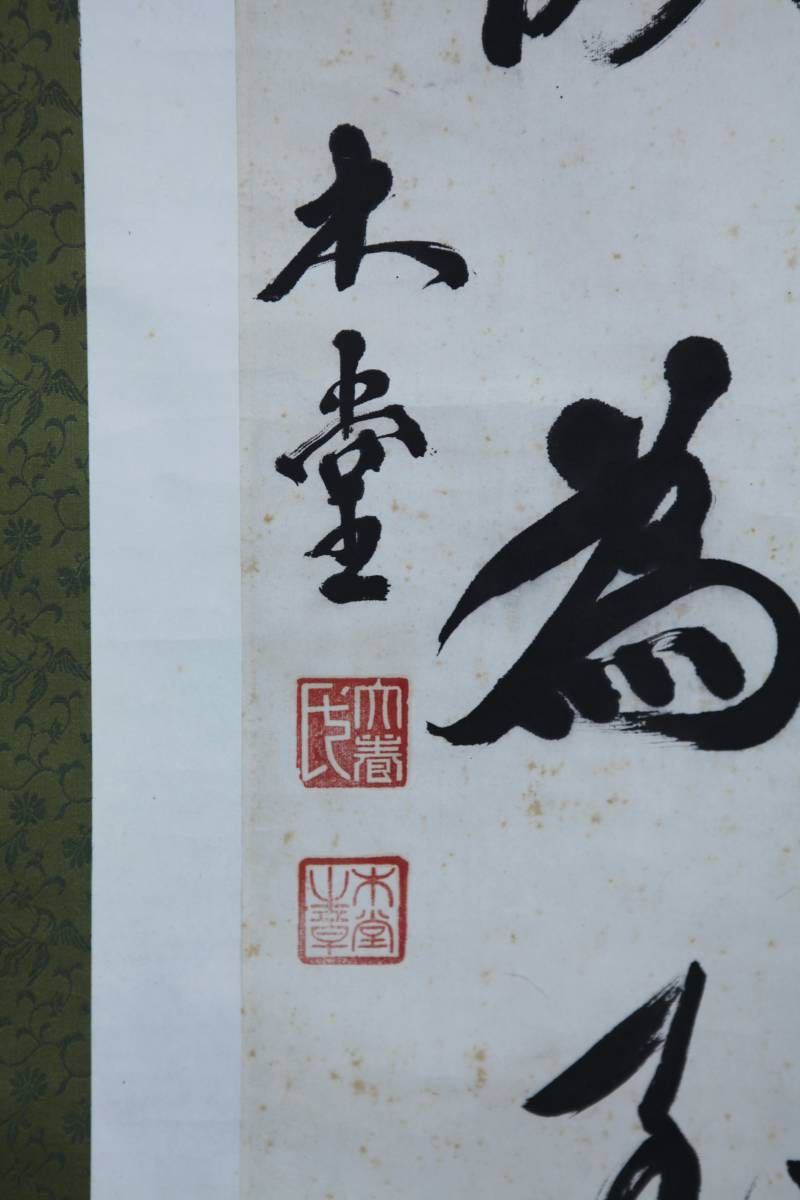 為
木堂
犬養氏
木堂之章